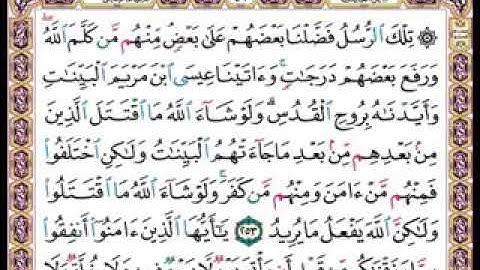 ۞ تِلْكَ ٱلرُّسُلُ فَضَّلْنَا بَعْضَهُمْ عَلَىٰ بَعْضٍ مِّنْهُم مَّن كَلَّمَ ٱللَّهُ
وَرَفَعَ بَعْضَهُمْ دَرَجَٰتٍ وَءَاتَيْنَا عِيسَى ٱبْنَ مَرْيَمَ ٱلْبَيِّنَٰتِ
وَأَيَّدْنَٰهُ بِرُوحِ ٱلْقُدُسِ وَلَوْ شَآءَ ٱللَّهُ مَا ٱقْتَتَلَ ٱلَّذِينَ
مِنۢ بَعْدِهِم مِّنۢ بَعْدِ مَا جَآءَتْهُمُ ٱلْبَيِّنَٰتُ وَلَٰكِنِ ٱخْتَلَفُوا۟
فَمِنْهُم مَّنْ ءَامَنَ وَمِنْهُم مَّن كَفَرَ وَلَوْ شَآءَ ٱللَّهُ مَا ٱقْتَتَلُوا۟
وَلَٰكِنَّ ٱللَّهَ يَفْعَلُ مَا يُرِيدُ ٢٥٣ يَٰٓأَيُّهَا ٱلَّذِينَ ءَامَنُوٓا۟ أَنفِقُوا۟